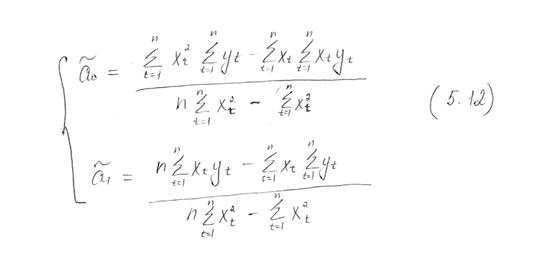 ã₀ = (∑_{t=1}^{n} x_t² ∑_{t=1}^{n} y_t − ∑_{t=1}^{n} x_t ∑_{t=1}^{n} x_t y_t) / (n ∑_{t=1}^{n} x_t² − ∑_{t=1}^{n} x_t²) (5.12)
ã₁ = (n ∑_{t=1}^{n} x_t y_t − ∑_{t=1}^{n} x_t ∑_{t=1}^{n} y_t) / (n ∑_{t=1}^{n} x_t² − ∑_{t=1}^{n} x_t²)